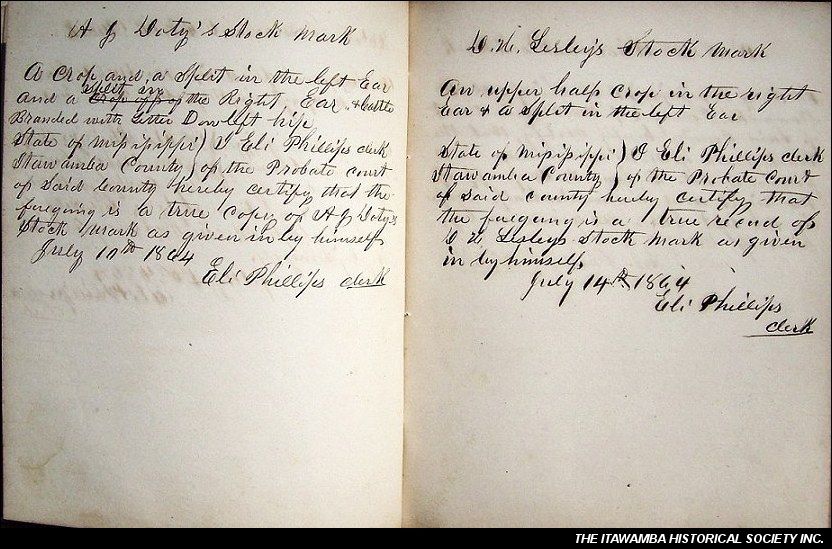 A J Doty's Stock Mark
A Crop, and, a Split in the left Ear
split in
and a Crop off of the Right Ear. & Cattle
Branded with Letter D on left hip
State of Missisippi ) I Eli Phillips clerk
Itawamba County ) of the Probate court
of Said County hereby certify that the
foregoing is a true Copy of A J Doty's
Stock Mark as given in by himself
July 10th 1864
Eli Phillips clerk
Lesley's Stock Mark
An upper half Crop in the right
Ear & a Split in the left Ear
State of Missisippi ) I Eli Phillips clerk
Itawamba County ) of the Probate Court
of Said county hereby certify that
the foregoing is a true record of
Lesleys Stock Mark as given
in by himself
July 14th 1864
Eli Phillips
clerk
THE ITAWAMBA HISTORICAL SOCIETY INC.